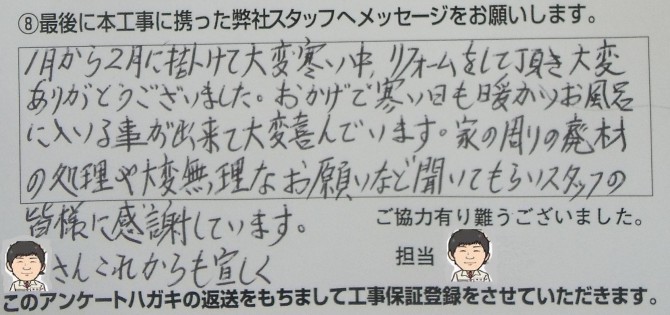 ⑧最後に本工事に携った弊社スタッフへメッセージをお願いします。
1月から2月に掛けて大変寒い中、リフォームをして頂き大変
ありがとうございました。おかげで寒い日も暖かいお風呂
に入いる事が出来て大変喜んでいます。家の周りの廃材
の処理や大変無理なお願いなど聞いてもらいスタッフの
皆様に感謝しています。
ご協力有り難うございました。
さんこれからも宜しく
担当
このアンケートハガキの返送をもちまして工事保証登録をさせていただきます。